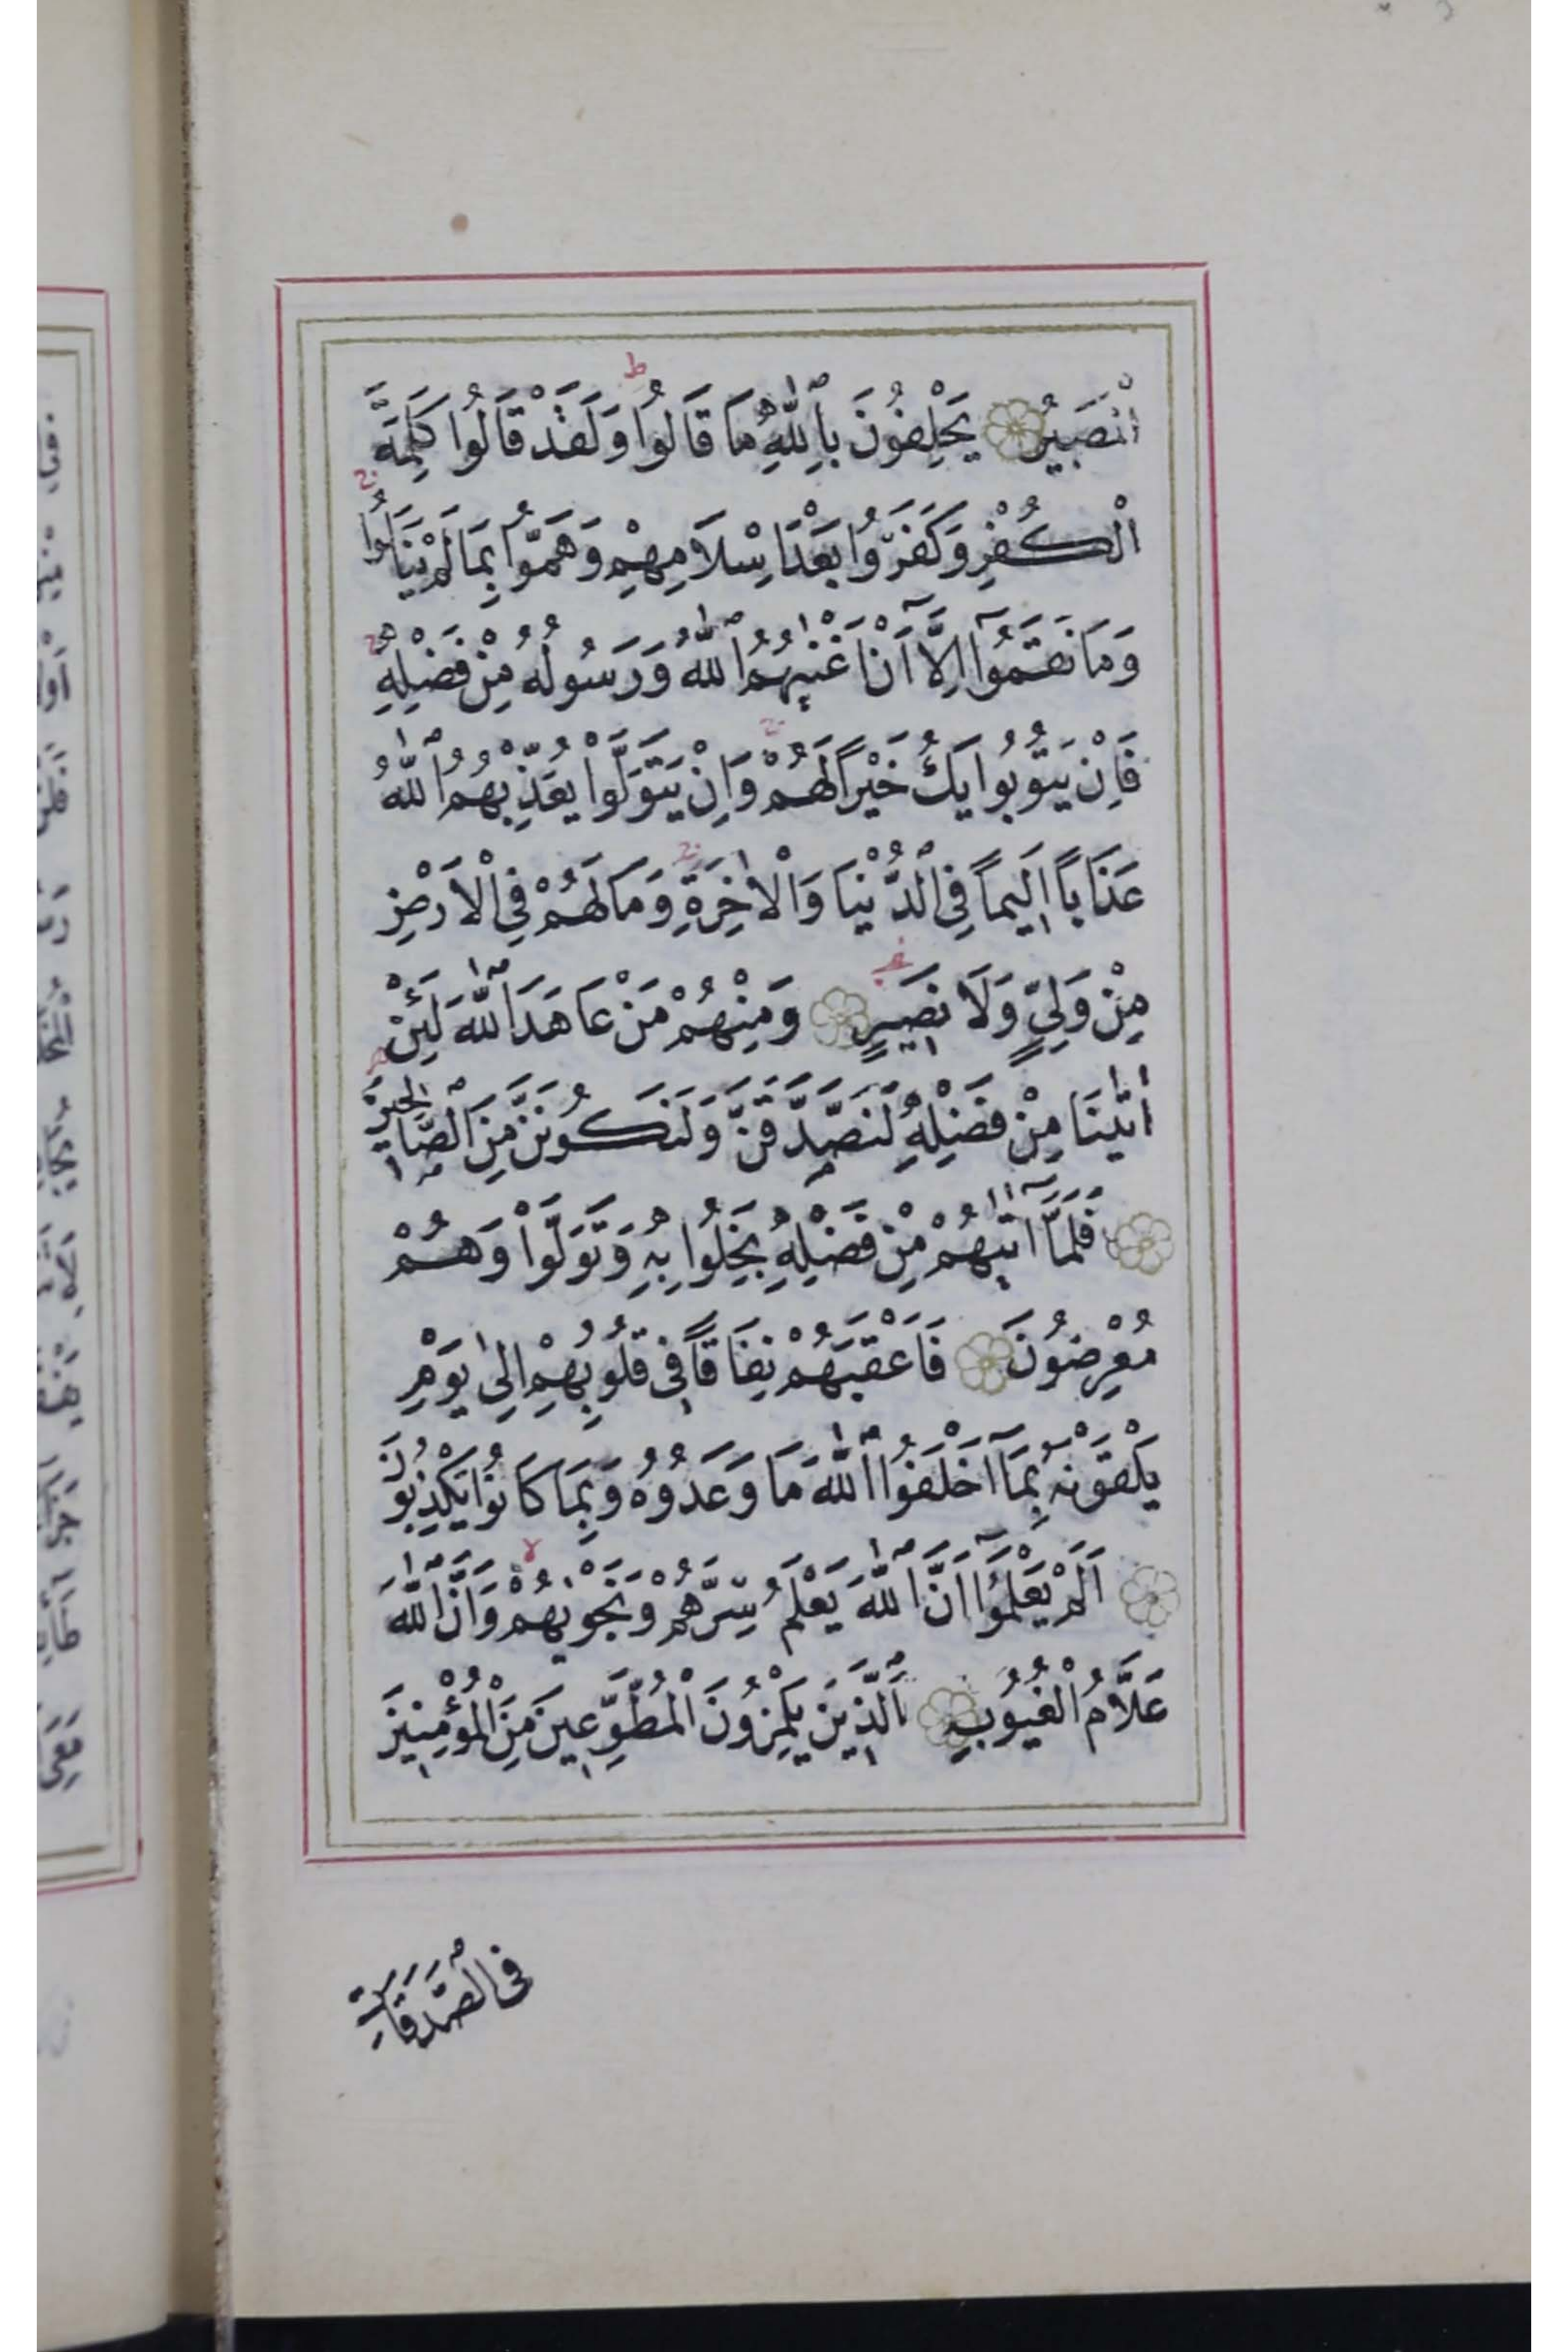 الْمَصِيرُ يَحْلِفُونَ بِاللّٰهِ مَا قَالُوا وَلَقَدْ قَالُوا كَلِمَةَ
الْكُفْرِ وَكَفَرُوا بَعْدَ اِسْلَامِهِمْ وَهَمُّوا بِمَا لَمْ يَنَالُوا
وَمَا نَقَمُوا اِلَّٓا اَنْ اَغْنٰيهُمُ اللّٰهُ وَرَسُولُهُ مِنْ فَضْلِهِ
فَاِنْ يَتُوبُوا يَكُ خَيْراً لَهُمْ وَاِنْ يَتَوَلَّوْا يُعَذِّبْهُمُ اللّٰهُ
عَذَاباً اَلِيماً فِي الدُّنْيَا وَالْاٰخِرَةِ وَمَا لَهُمْ فِي الْاَرْضِ
مِنْ وَلِيٍّ وَلَا نَصِيرٍ وَمِنْهُمْ مَنْ عَاهَدَ اللّٰهَ لَئِنْ
اٰتٰينَا مِنْ فَضْلِهِ لَنَصَّدَّقَنَّ وَلَنَكُونَنَّ مِنَ الصَّالِحِينَ
فَلَمَّٓا اٰتٰيهُمْ مِنْ فَضْلِهِ بَخِلُوا بِهِ وَتَوَلَّوْا وَهُمْ
مُعْرِضُونَ فَاَعْقَبَهُمْ نِفَاقاً فِي قُلُوبِهِمْ اِلٰى يَوْمِ
يَلْقَوْنَهُ بِمَٓا اَخْلَفُوا اللّٰهَ مَا وَعَدُوهُ وَبِمَا كَانُوا يَكْذِبُونَ
اَلَمْ يَعْلَمُٓوا اَنَّ اللّٰهَ يَعْلَمُ سِرَّهُمْ وَنَجْوٰيهُمْ وَاَنَّ اللّٰهَ
عَلَّامُ الْغُيُوبِ اَلَّذِينَ يَلْمِزُونَ الْمُطَّوِّعِينَ مِنَ الْمُؤْمِنِينَ
فِي الصَّدَقَاتِ